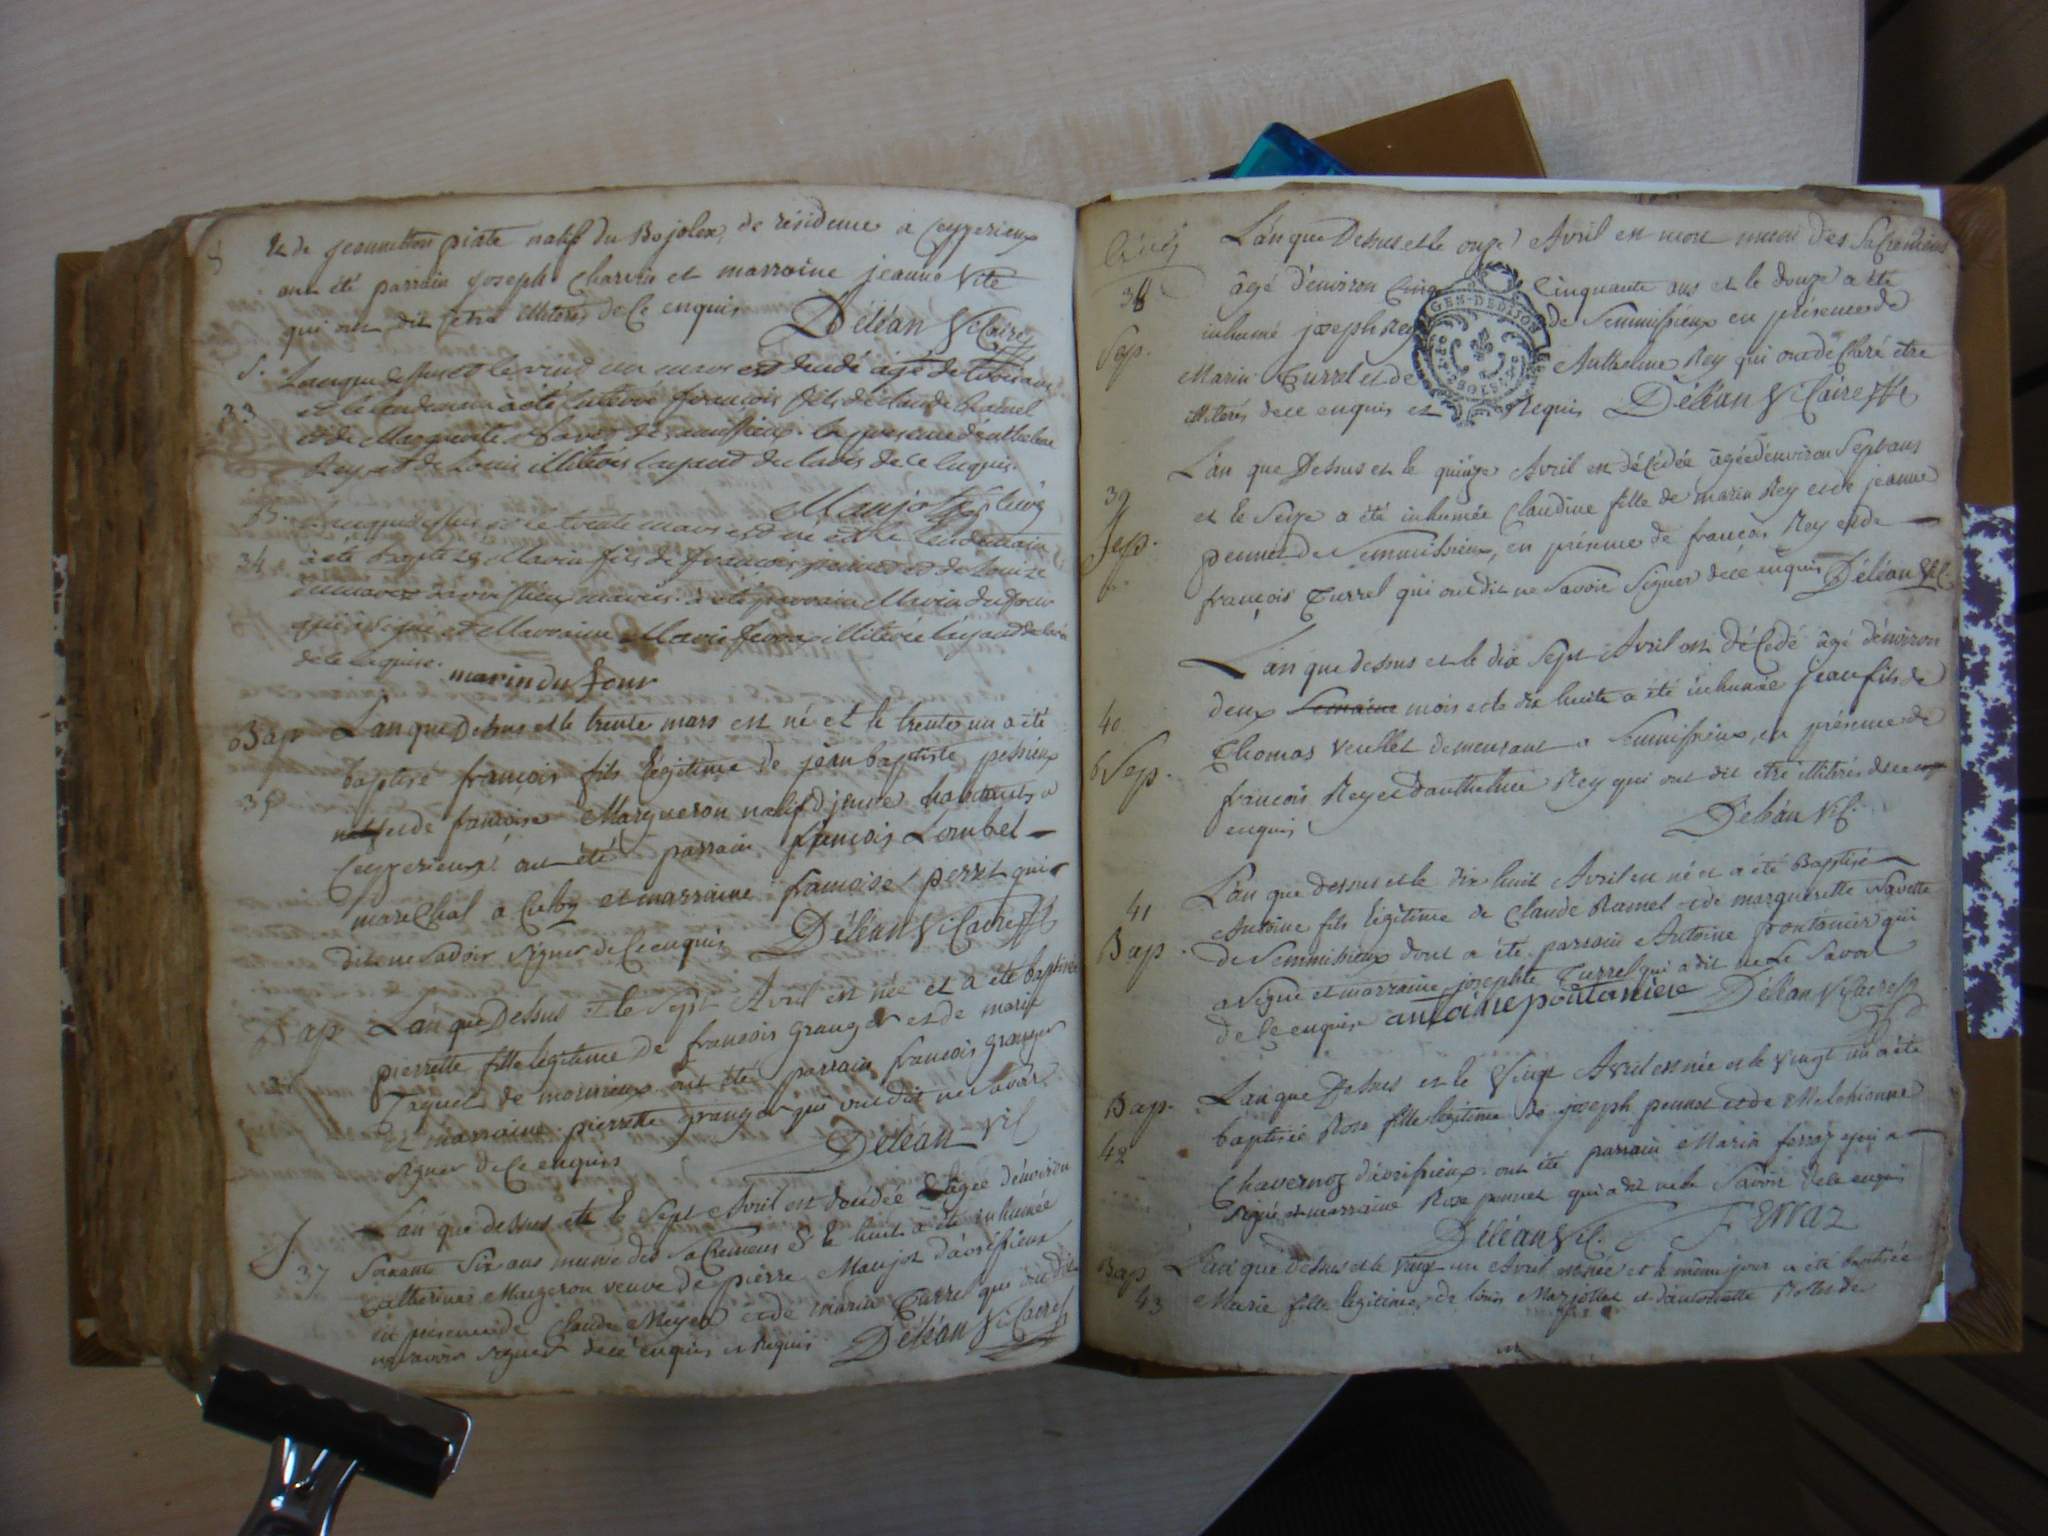 et de jeannetton piate natif du Bojolex, de résidence a Ceyzerieux
ont été parrain joseph Charvin et marraine jeanne Vite
qui ont dit etre illiteres de Ce enquis Déléan Vicaire
S.
33
et le lendemain à été enterré françois fils de claude Ramel
et de Marguerite
Rey et de Louis illiterés de ce enquis.
B.
34
L'an que dessus et le trente mars est né et le lendemain
à été baptizé Marin fils de françois pennet et de Louise
à été parrain Marin dufour
qui a signé et Marraine Marie ferra illiterée
de ce enquise. marin du four
Bap
35
L'an que Dessus et le trente mars est né et le trente un a été
baptisé françois fils légitime de jean baptiste pessieux
et de francoise Margueron natif d habitants a
Ceyzerieux ont été parrain francois Lombel
mareChal a Culoz et marraine francoise perret qui
dit ne savoir signer de Ce enquis Déléan Vicaire
Bap
L'an que Dessus et le Sept Avril est née et a été baptisée
pierrette fille légitime de francois granger et de marie
Taquet de mourieux ont été parrain francois granger
et marraine pierrette granger qui ont dit ne savoir
signer de Ce enquis Déléan Vic
S
37
L'an que dessus et le Sept Avril est décédée agée d'environ
Soixante Six ans munie des saCremens & le huit a été inhumée
Catherine Mugeron veuve de pierre Maujot d'avrissieux
en présence de Claude Meyer et de marin Turrel qui ont dit
ne savoir signer de ce enquis et requis Déléan Vicaire
38
Sep.
L'an que Dessus et le onze Avril est mort muni des SaCremens
âgé d'environ Cinq Cinquante ans et le douze a été
inhumé joseph Rey de Semmissieux en présence de
Marin Turrel et de Anthelme Rey qui ont déClaré etre
illiterés de ce enquis et Requis Déléan Vicaire
39
Sep.
L'an que Dessus et le quinze Avril est déCédée âgée d'environ Sept ans
et le Seize a été inhumée Claudine fille de marin Rey et de jeanne
pennet de Semmissieux, en présence de françois Rey et de
françois Turrel qui ont dit ne Savoir Signer de ce enquis Déléan Vic.
40
Sep.
L'an que dessus et le dix Sept Avril est déCedé âgé d'environ
deux Semaine mois et le dix huite a été inhumée jean fils de
Thomas Veullet demeurant a Semmissieux, en présence de
francois Rey et d'anthelme Rey qui ont dit etre illiterés de ce
enquis Déléan Vic.
41
Bap.
L'an que dessus et le dix huit Avril est né et a été Baptisé
Antoine fils légitime de Claude Ramel et de marguerite Navette
de Semmissieux dont a été parrain Antoine frontanier qui
a signé et marraine josephte Turrel qui a dit ne Le Savoir
de Ce enquise antoine pontaniere Déléan Vicaire
Bap.
42
L'an que Dessus et le Vingt Avril est née et le Vingt un a été
baptisée Rose fille légitime de joseph pennet et de Melchionne
Chavernoz d'avrissieux. ont été parrain Marin ferraz qui a
signé et marraine Rose pennet qui a dit ne le Savoir de Ce enquis
Déléan Vic. Ferraz
Bap
43
L'an que dessus et le Vingt un Avril est née et le même jour a été baptisée
Marie fille légitime de louis Marjollet et d'antoinette Rollet de